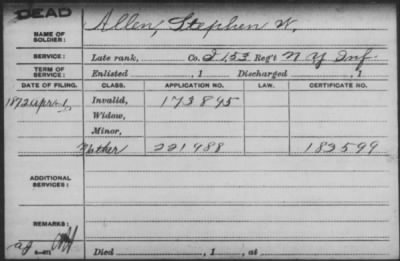 DEAD
NAME OF SOLDIER: Allen, Stephen W.
SERVICE: Late rank, Co. I, 153 Reg't N Y Inf.
TERM OF SERVICE: Enlisted , 1 Discharged , 1
DATE OF FILING. CLASS. APPLICATION NO. LAW. CERTIFICATE NO.
1872 Apr. 1 Invalid, 173845
Widow,
Minor,
Mother 221488 182599
ADDITIONAL SERVICES:
REMARKS:
Died , 1 , at